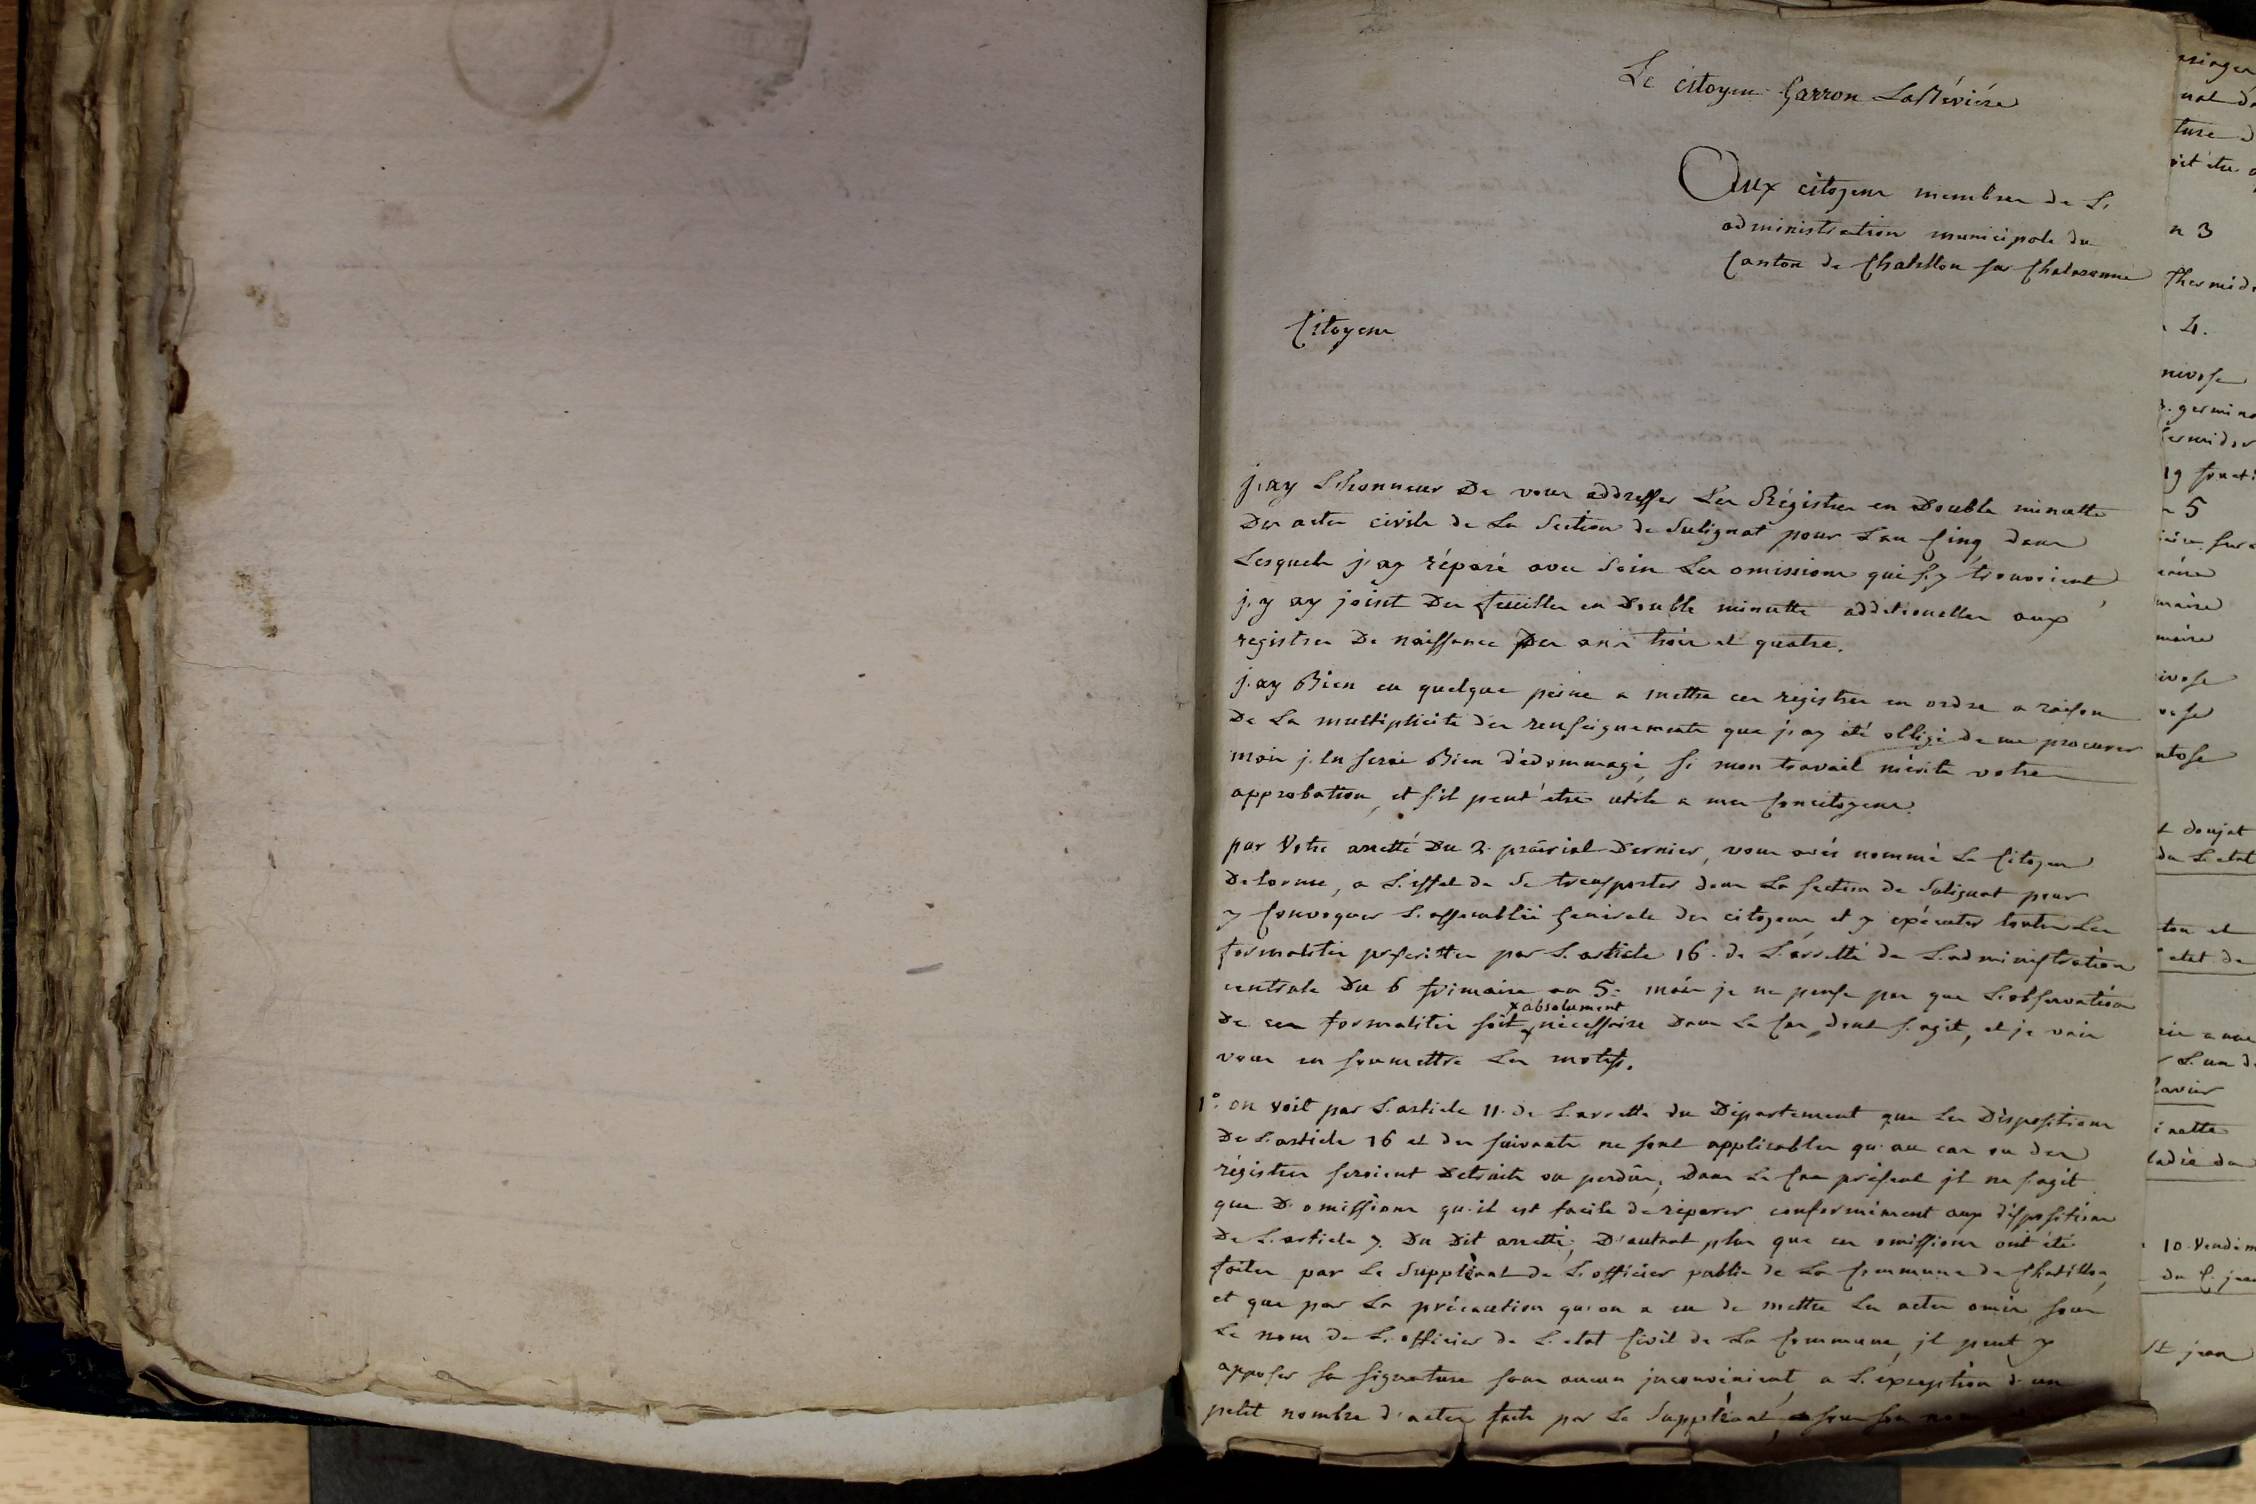 Le citoyen Garron LaBévière
Aux citoyens membres de L'
administration municipale du
Canton de Chatillon sur Chalaronne
Citoyens
j'ay L'honneur De vous addresser Les Régistres en Double minutte
Des actes civils de La Section de Sulignat pour L'an Cinq dans
Lesquels j'ay réparé avec Soin Les omissions qui s'y trouvoient,
j'y ay joint Des feuilles en Double minutte additionelles aux
registres De naissance Des ans trois et quatre.
j'ay Bien eu quelque peine a mettre ces registres en ordre a raison
De La multiplicité des renseignements que j'ay été obligé de me procurer
mais j'en serai Bien dédommagé, si mon travail mérite votre
approbation, et s'il peut être utile a mes Concitoyens.
par Votre arretté Du 2. prairial Dernier, vous avés nommé Le Citoyen
Delorme, a L'effet de Se transporter dans La section de Sulignat pour
y Convoquer L'assemblée Générale des citoyens et y exécuter toutes Les
formalités prescrittes par L'article 16. de L'arretté de L'administration
centrale Du 6 frimaire an 5: mais je ne pense pas que L'observation
x absolument
De ces formalités soit x nécessaire Dans Le Cas dont s'agit, et je vais
vous en soumettre Les motifs.
1°. on voit par L'article 11. de L'arretté du Département que Les Dispositions
De L'article 16 et des suivants ne sont applicables qu'au cas ou des
régistres seroient Detruits ou perdûs; Dans Le Cas présent il ne s'agit
que D'omissions qu'il est facile de réparer conformément aux dispositions
De L'article 7. Du Dit arretté, D'autant plus que ces omissions ont été
faites par Le Suppléant de L'officier public de La Commune de Chatillon,
et que par La précaution qu'on a eu de mettre Les actes omis sous
Le nom de L'officier de L'etat Civil de La Commune, il peut y
apposer sa signature sans aucun inconvénient, a L'exception d'un
petit nombre d'actes faits par Le Suppléant, sous son nom
n 3
Thermid
4.
nivose
germin
19
5
10. Vendém
St jean